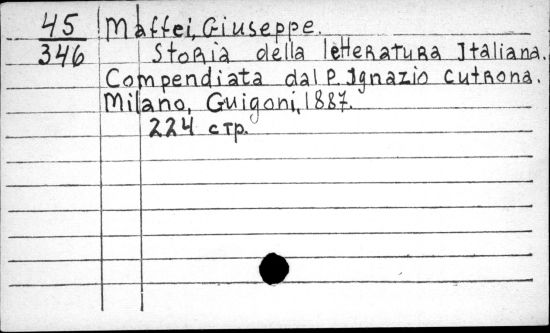 45 Maffei, Giuseppe.
346 Storia della letteratura Italiana.
Compendiata dal P. Ignazio Cutrona.
Milano, Guigoni, 1887.
224 стр.